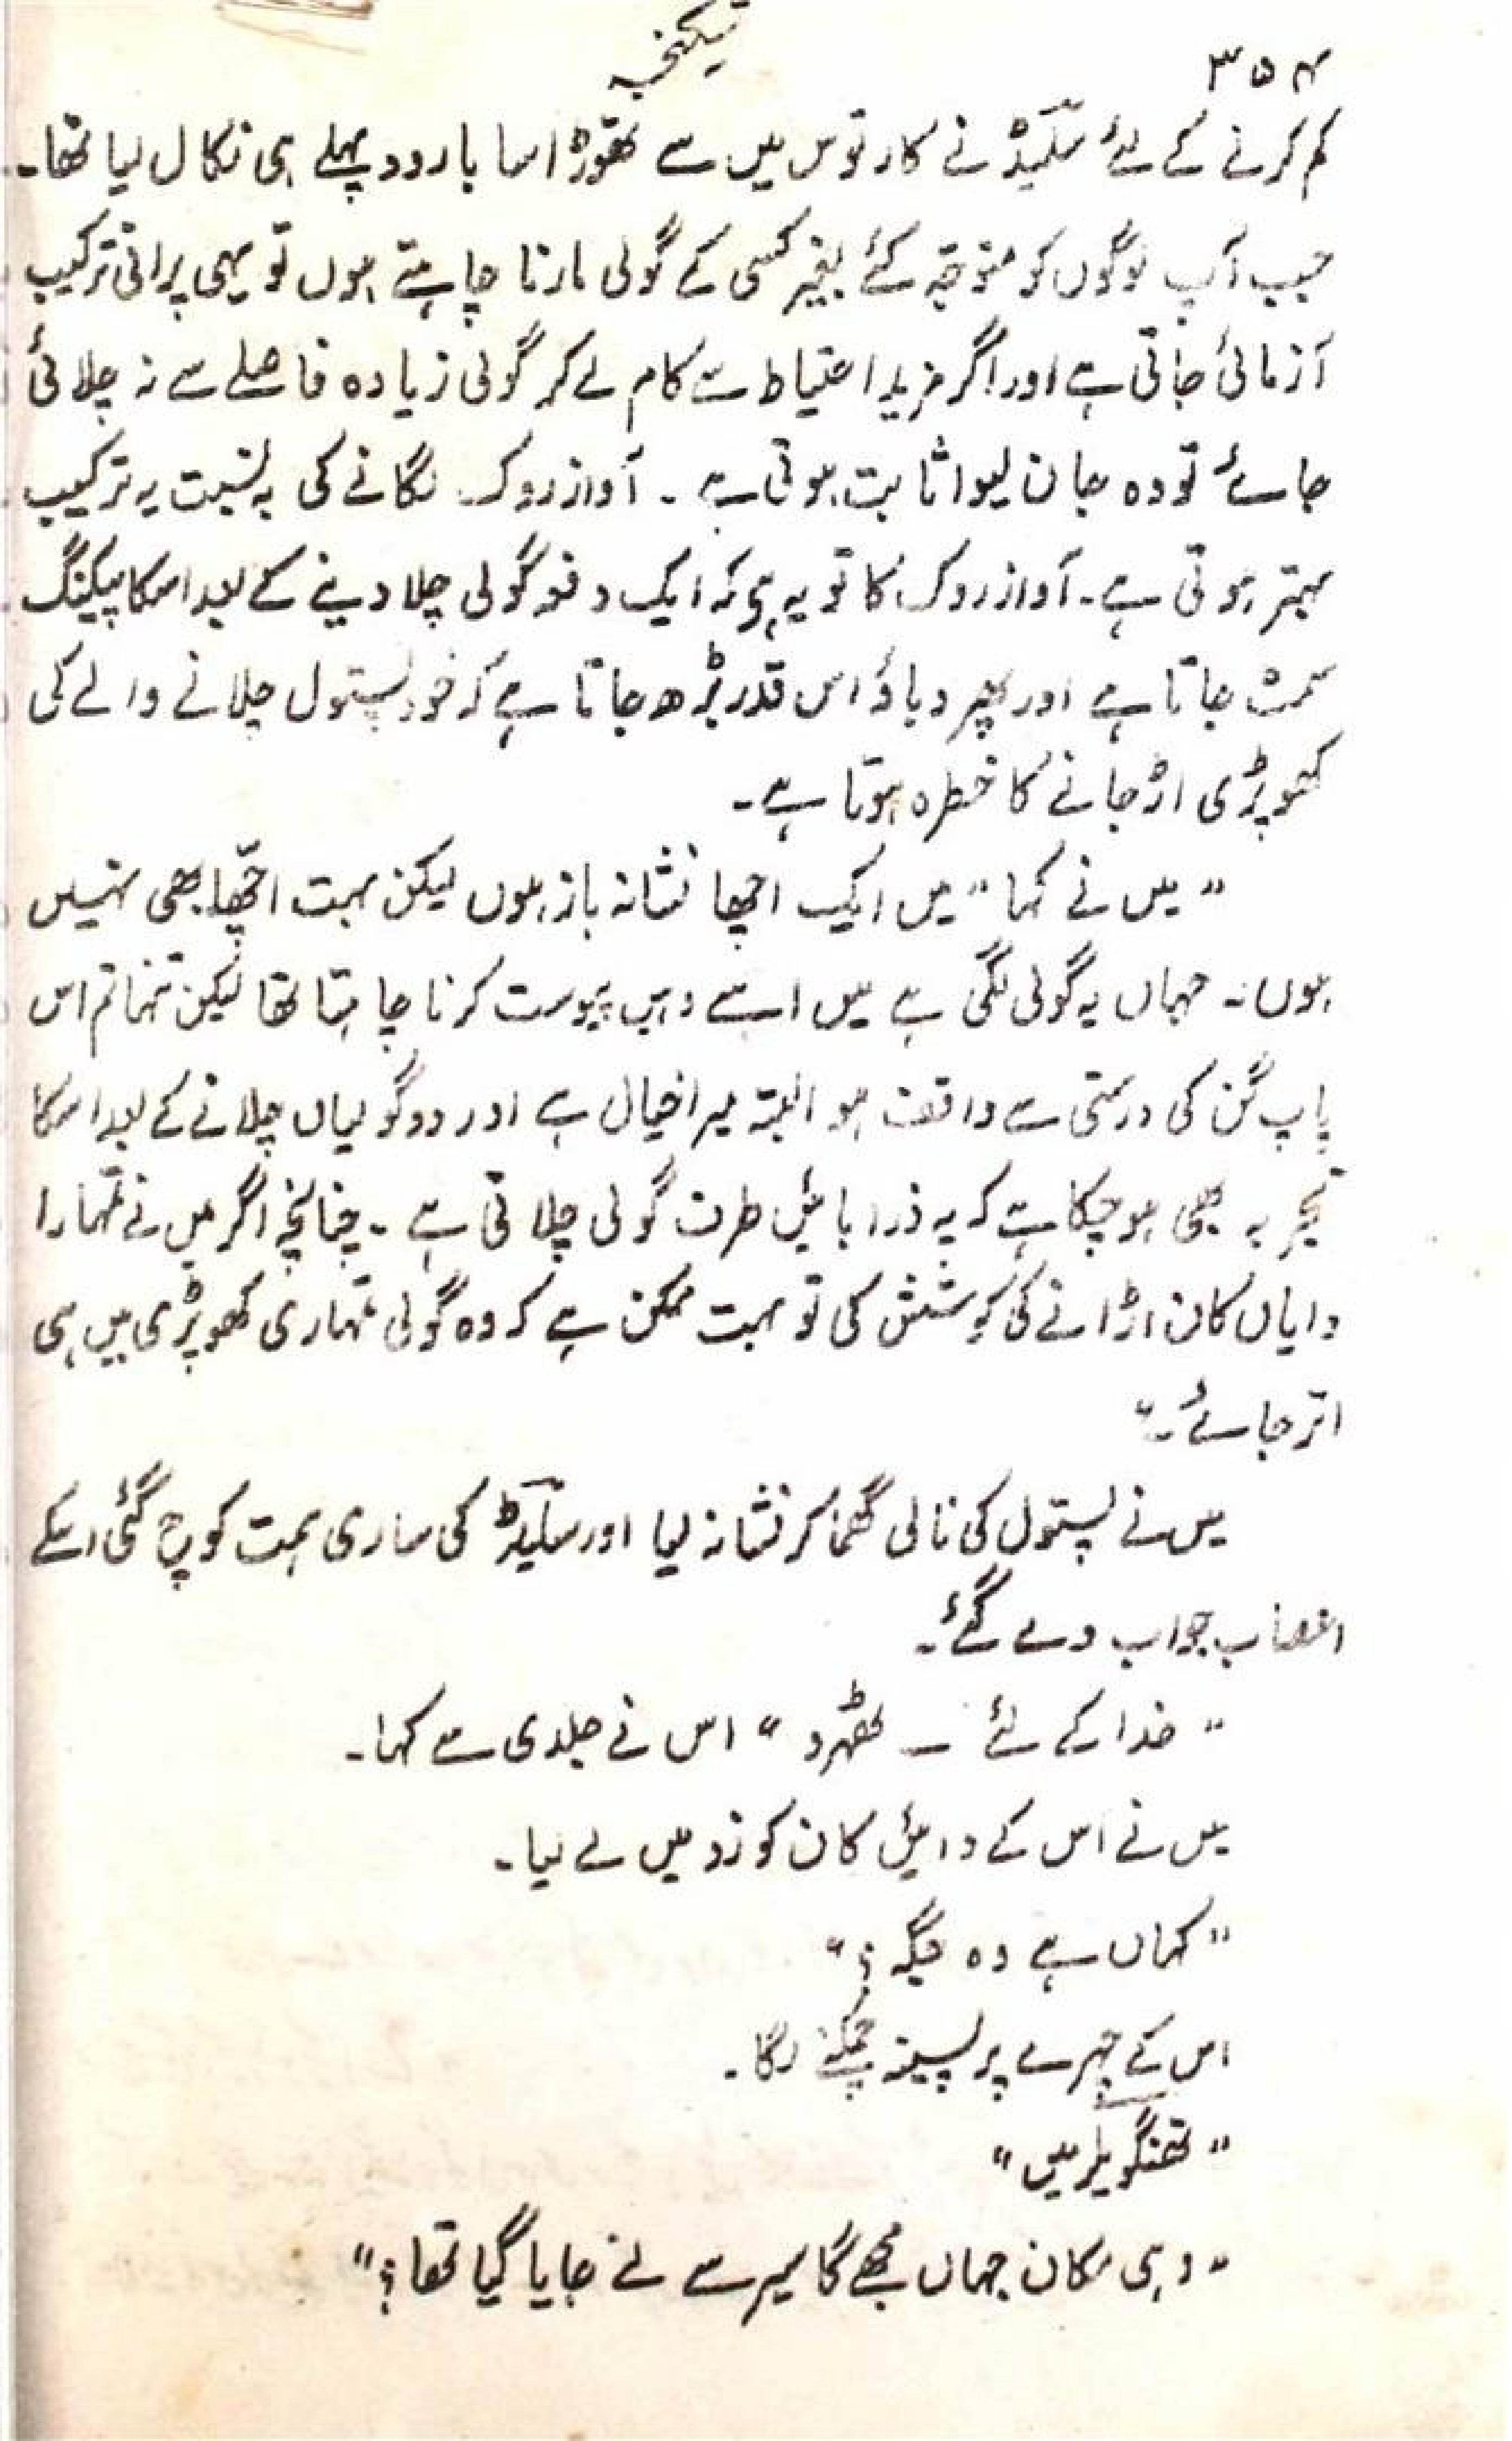 ۳۵۴
شکنجہ
کم کرنے کے لئے سلیڈ نے کارتوس میں سے تھوڑا سا بارود پہلے ہی نکال لیا تھا۔
جب آپ لوگوں کو متوجہ کئے بغیر کسی کے گولی مارنا چاہتے ہوں تو یہی پرانی ترکیب
آزمائی جاتی ہے اور اگر مزید احتیاط سے کام لے کر گولی زیادہ فاصلے سے نہ چلائی
جائے تو وہ جان لیوا ثابت ہوتی ہے ۔ آواز روک لگانے کی بہ نسبت یہ ترکیب
بہتر ہوتی ہے۔ آواز روک کا تو یہ ہے کہ ایک دفعہ گولی چلا دینے کے بعد اسکا پیکنگ
سمٹ جاتا ہے اور پھر دباؤ اس قدر بڑھ جاتا ہے کہ خود پستول چلانے والے کی
کھوپڑی اڑ جانے کا خطرہ ہوتا ہے۔
" میں نے کہا " میں ایک اچھا نشانہ باز ہوں لیکن بہت اچھا بھی نہیں
ہوں۔ جہاں یہ گولی لگی ہے میں اسے وہیں پیوست کرنا چاہتا تھا لیکن تنہا تم اس
پاپ گن کی درستی سے واقف ہو البتہ میرا خیال ہے اور دو گولیاں چلانے کے بعد اسکا
تجربہ بھی ہو چکا ہے کہ یہ ذرا بائیں طرف گولی چلاتی ہے ۔ چنانچہ اگر میں نے تمہارا
دایاں کان اڑانے کی کوشش کی تو بہت ممکن ہے کہ وہ گولی تمہاری کھوپڑی میں ہی
اتر جائے۔"
میں نے پستول کی نالی گھما کر نشانہ لیا اور سلیڈ کی ساری ہمت کوچ گئی اسکے
اعصاب جواب دے گئے۔
" خدا کے لئے ــ ٹھہرو " اس نے جلدی سے کہا۔
میں نے اس کے دائیں کان کو زد میں لے لیا۔
" کہاں ہے وہ جگہ ؟ "
اس کے چہرے پر پسینہ چمکنے لگا۔
" تھنگویلر میں "
" وہی مکان جہاں مجھے گامیر سے لے جایا گیا تھا ؟ "